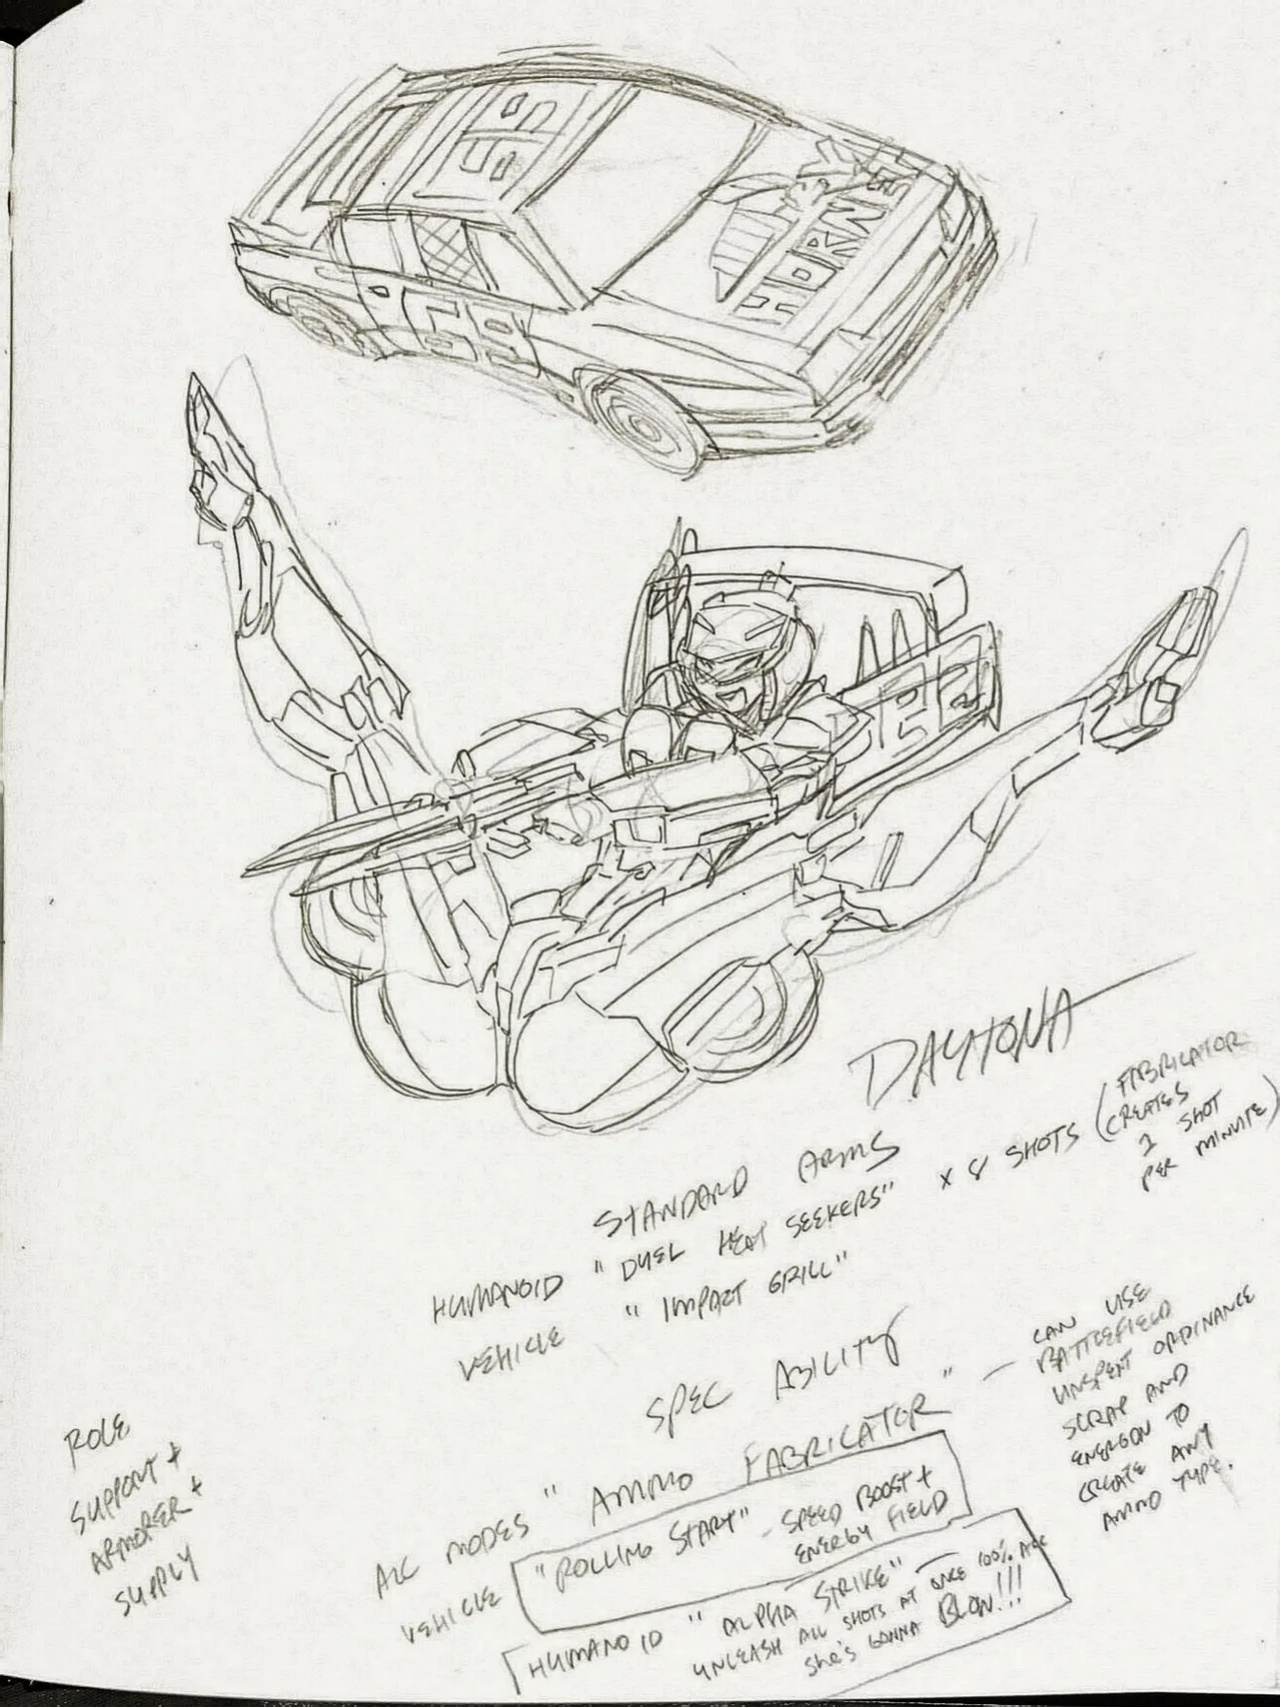 HORNET
69
DAYTONA
STANDARD ARMS
HUMANOID "DUEL HEAT SEEKERS" x 8 SHOTS (FABRICATOR
CREATES
1 SHOT
PER MINUTE)
VEHICLE "IMPACT GRILL"
SPEC ABILITY
ALL MODES "AMMO FABRICATOR" — CAN USE
BATTLEFIELD
UNSPENT ORDINANCE
SCRAP AND
ENERGON TO
CREATE ANY
AMMO TYPE.
VEHICLE "ROLLING START" - SPEED BOOST +
ENERGY FIELD
HUMANOID "ALPHA STRIKE" —
UNLEASH ALL SHOTS AT ONCE 100% ACC
She's GONNA BLOW!!!
ROLE
SUPPORT +
ARMORER +
SUPPLY